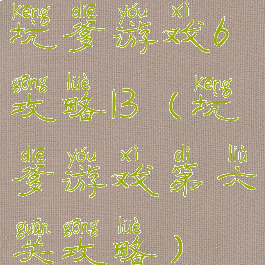 kēng diē yóu xì
坑爹游戏6
gōng lüè kēng
攻略13(坑
diē yóu xì dì liù
爹游戏第六
guān gōng lüè
关攻略)